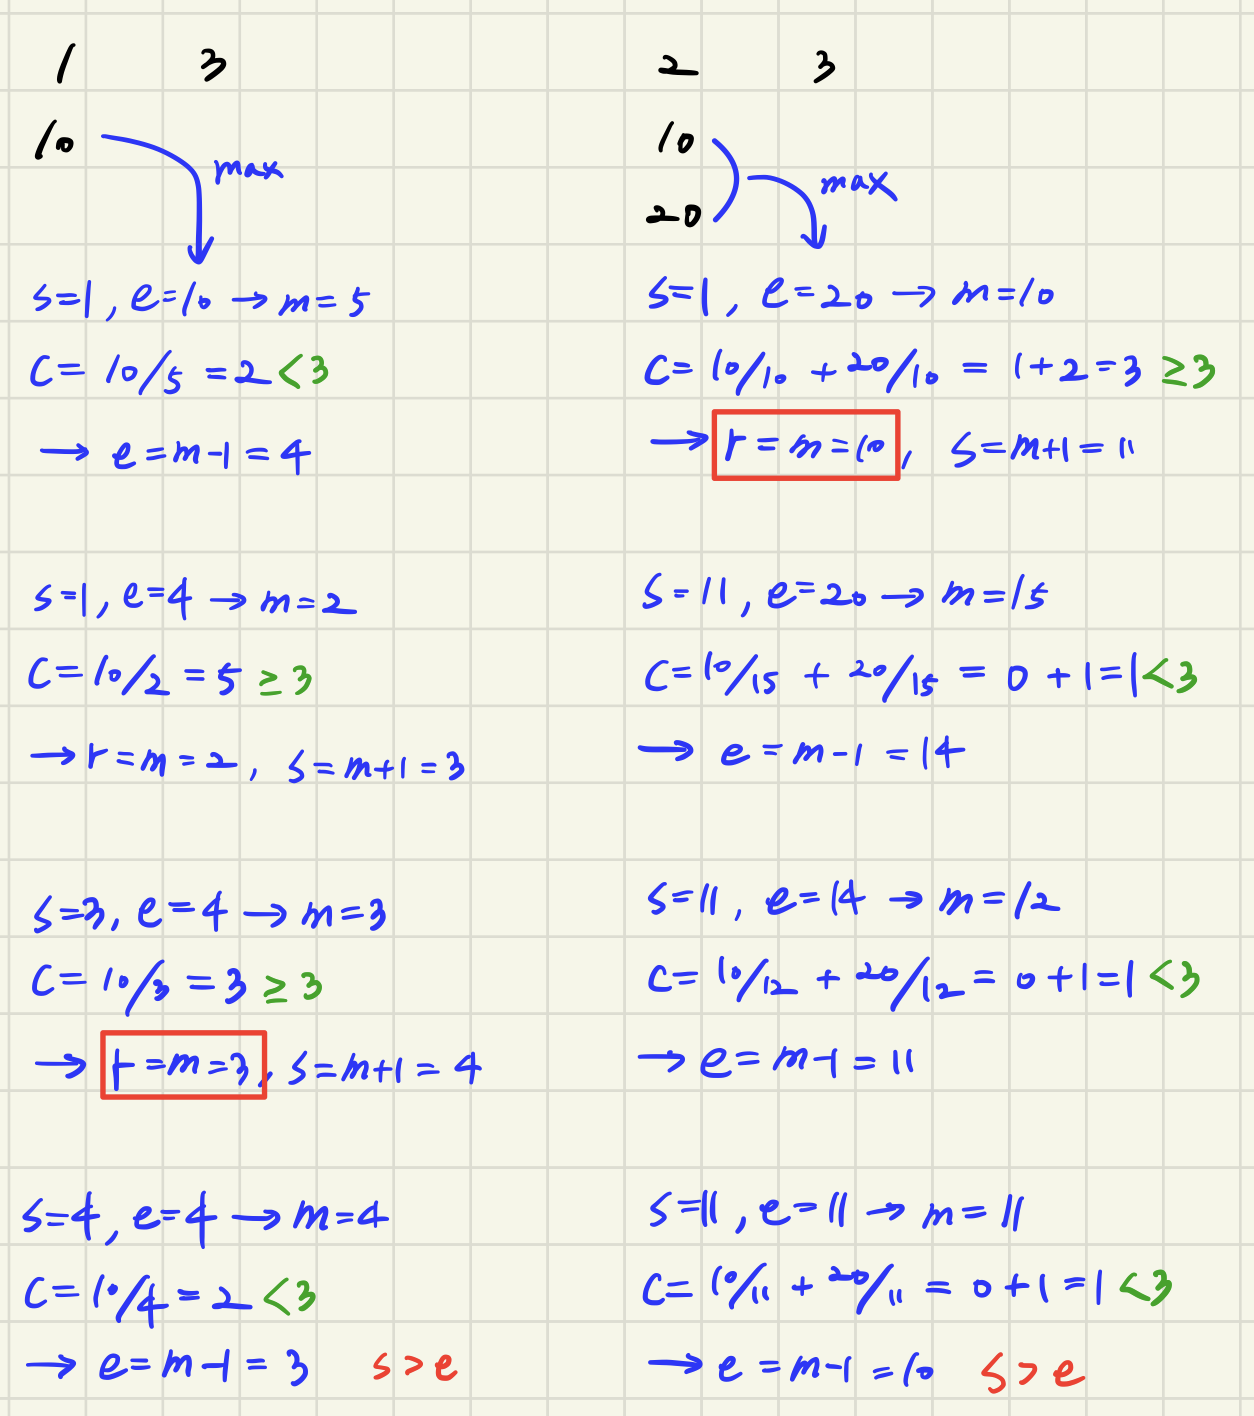 1 3
10
max
s=1, e=10 → m=5
C= 10/5 = 2 <3
→ e=m-1=4
s=1, e=4 → m=2
C=10/2 = 5 ≥3
→ r=m=2, s=m+1=3
s=3, e=4 → m=3
C=10/3 = 3 ≥3
→ r=m=3, s=m+1=4
s=4, e=4 → m=4
C=10/4 = 2 <3
→ e=m-1=3 s>e
2 3
10
20
max
s=1, e=20 → m=10
C= 10/10 + 20/10 = 1+2=3 ≥3
→ r=m=10, s=m+1=11
s=11, e=20 → m=15
C=10/15 + 20/15 = 0+1=1<3
→ e=m-1=14
s=11, e=14 → m=12
C= 10/12 + 20/12 = 0+1=1 <3
→ e=m-1=11
s=11, e=11 → m=11
C= 10/11 + 20/11 = 0+1=1 <3
→ e=m-1=10 s>e